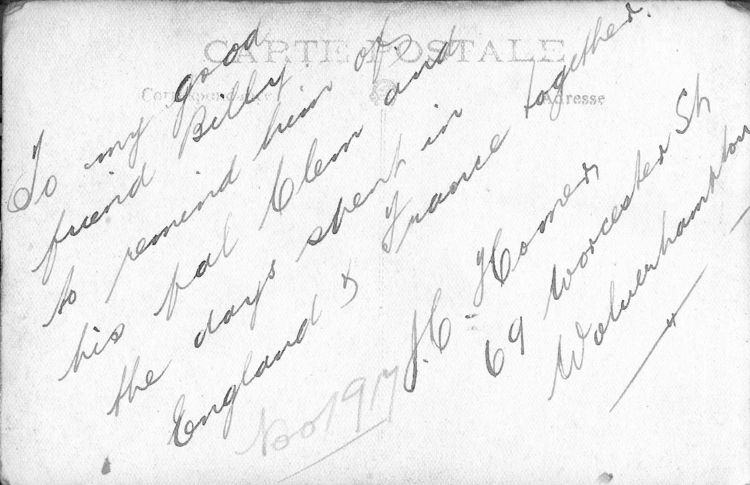 CARTE POSTALE
Correspondance
Adresse
To my good
friend Billy
to remind him of
his pal Clem and
the days spent in
England & France together.
J.C. Homer
69 Worcester St
Wolverhampton
Nov 1917